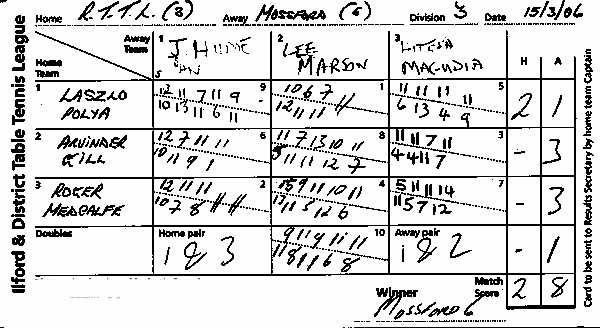 Ilford & District Table Tennis League
Home R.T.T.L. (3) Away MOSSFORD (6) Division 3 Date 15/3/06
Away Team 1 2 LEE MARSON 3 H A
Home Team
1 LASZLO POLYA 9 1 5 2 1
12 11 7 11 9 - 10 6 7 11 11 11
10 13 11 6 11 12 11 11 6 13 4 9
2 ARVINDER GILL 6 8 3 - 3
12 7 11 11 11 7 13 10 11 11 11 7 11
10 11 9 1 11 11 12 7 4 4 11 7
3 ROGER METCALFE 2 4 7 - 3
12 11 11 11 10 11 5 11 11 14
10 7 8 12 6 11 5 7 12
Doubles Home pair 1 & 3 10 Away pair 1 & 2 - 1
9 11 9 11 11
11 8 11 6 8
Winner MOSSFORD 6 Match Score 2 8
Card to be sent to Results Secretary by home team Captain